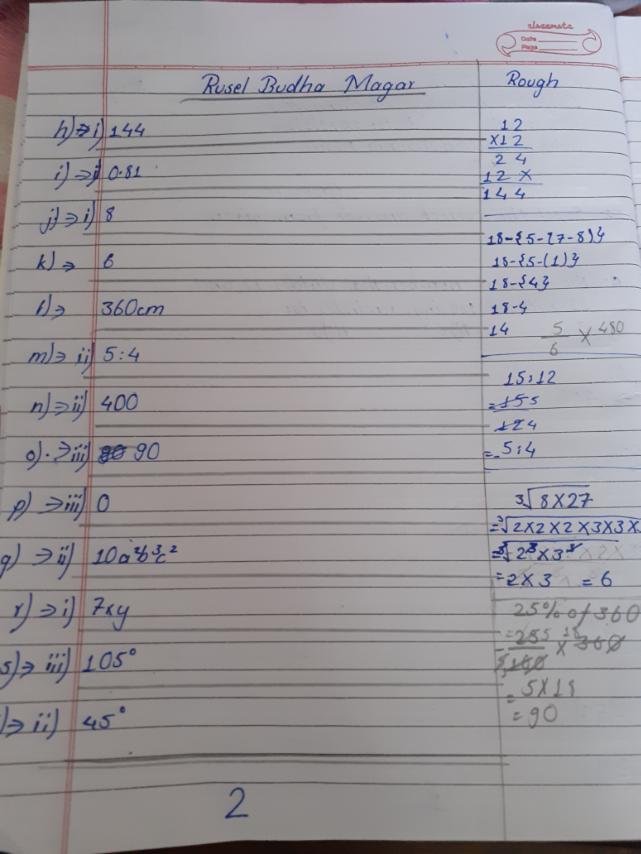 classmate
Date
Page
Rusel Budha Magar
h) ⇒ i) 144
i) ⇒ i) 0.81
j) ⇒ i) 8
k) ⇒ 6
l) ⇒ 360cm
m) ⇒ ii) 5:4
n) ⇒ ii) 400
o). ⇒ iii) 90
p) ⇒ iii) 0
q) ⇒ ii) 10a²b³c²
r) ⇒ i) 7xy
s) ⇒ iii) 105°
) ⇒ ii) 45°
2
Rough
12
x12
24
12 x
144
18-{5-(7-8)}
18-{5-(1)}
18-{4}
18-4
14
5/6 x 480
15:12
= 15 5
12 4
= 5:4
³√8x27
= ³√2x2x2x3x3x
= ³√2³x3³
= 2x3 = 6
25% of 360
= 25 5 / 100 x 18 360
= 5x18
= 90